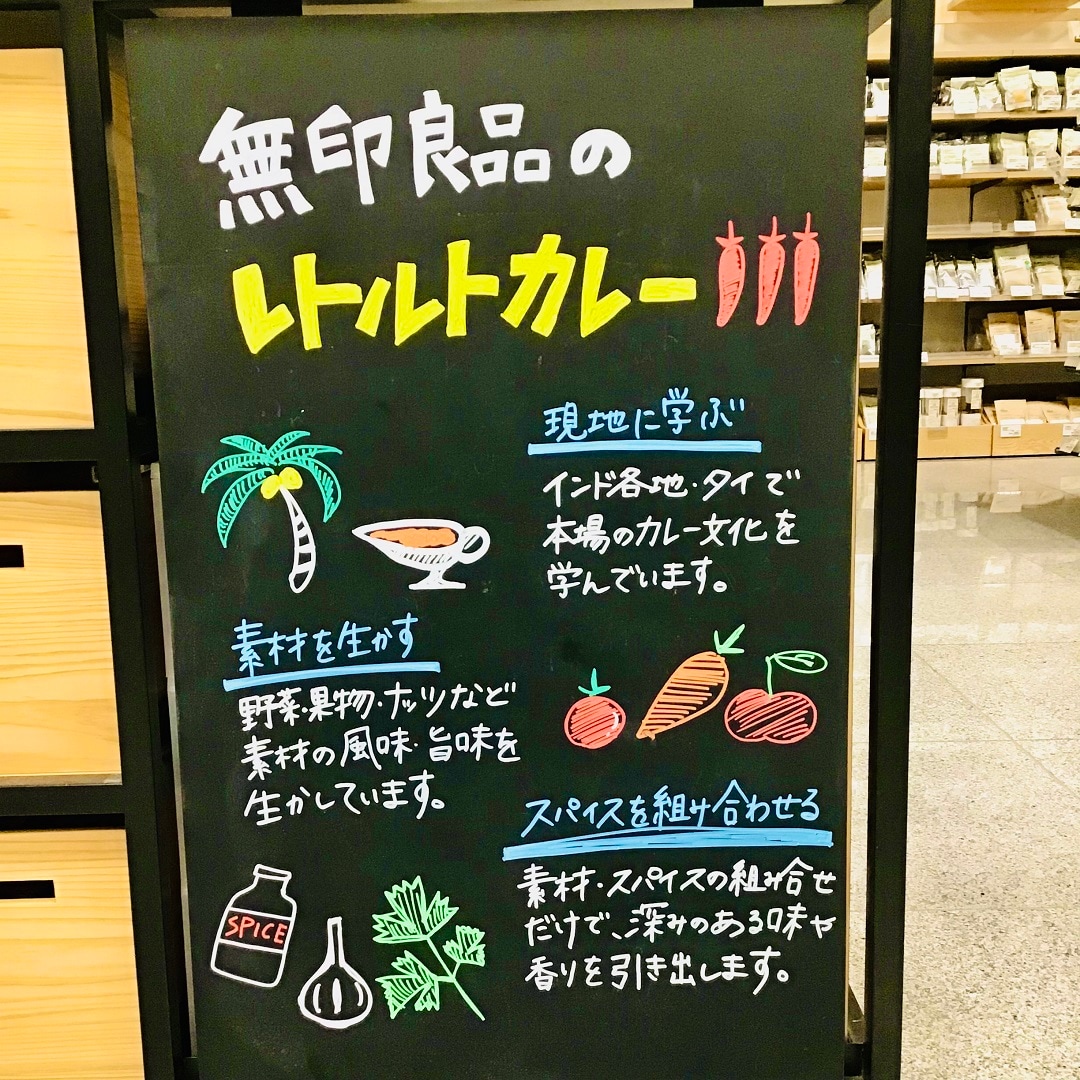 無印良品の
レトルトカレー
現地に学ぶ
インド各地・タイで
本場のカレー文化を
学んでいます。
素材を生かす
野菜・果物・ナッツなど
素材の風味・旨味を
生かしています。
スパイスを組み合わせる
素材・スパイスの組み合せ
だけで、深みのある味や
香りを引き出します。
SPICE